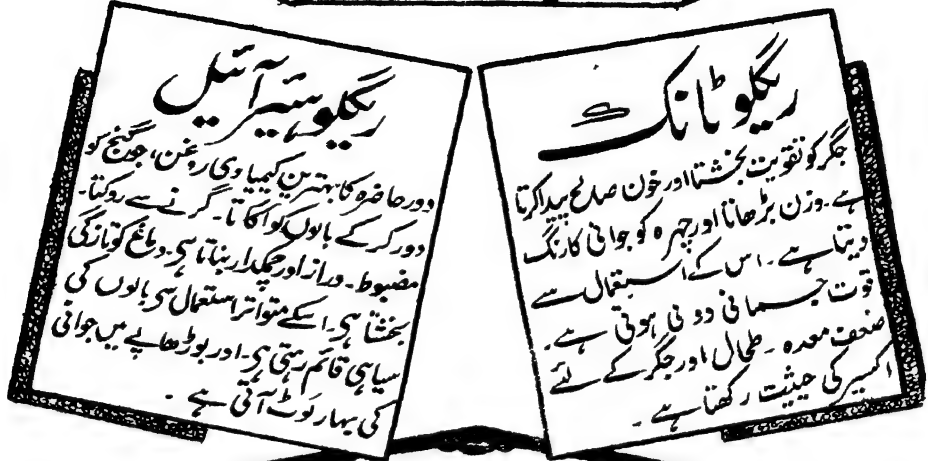 ریگلو ٹانک
جگر کو تقویت بخشتا اور خون صالح پیدا کرتا
ہے۔ وزن بڑھاتا اور چہرہ کو جوانی کا رنگ
دیتا ہے۔ اس کے استعمال سے
قوت جسمانی دونی ہوتی ہے۔
ضعف معدہ۔ طحال اور جگر کے لئے
اکسیر کی حیثیت رکھتا ہے۔
ریگلو ہیئر آئیل
دور حاضرہ کا بہترین کیمیاوی روغن، جو گنج کو
دور کر کے بالوں کو اگاتا۔ گرنے سے روکتا۔
مضبوط۔ دراز اور چمکدار بناتا ہی۔ دماغ کو تازگی
بخشتا ہی۔ اسکے متواتر استعمال سی بالوں کی
سیاہی قائم رہتی ہی۔ اور بوڑھاپے میں جوانی
کی بہار لوٹ آتی ہے۔